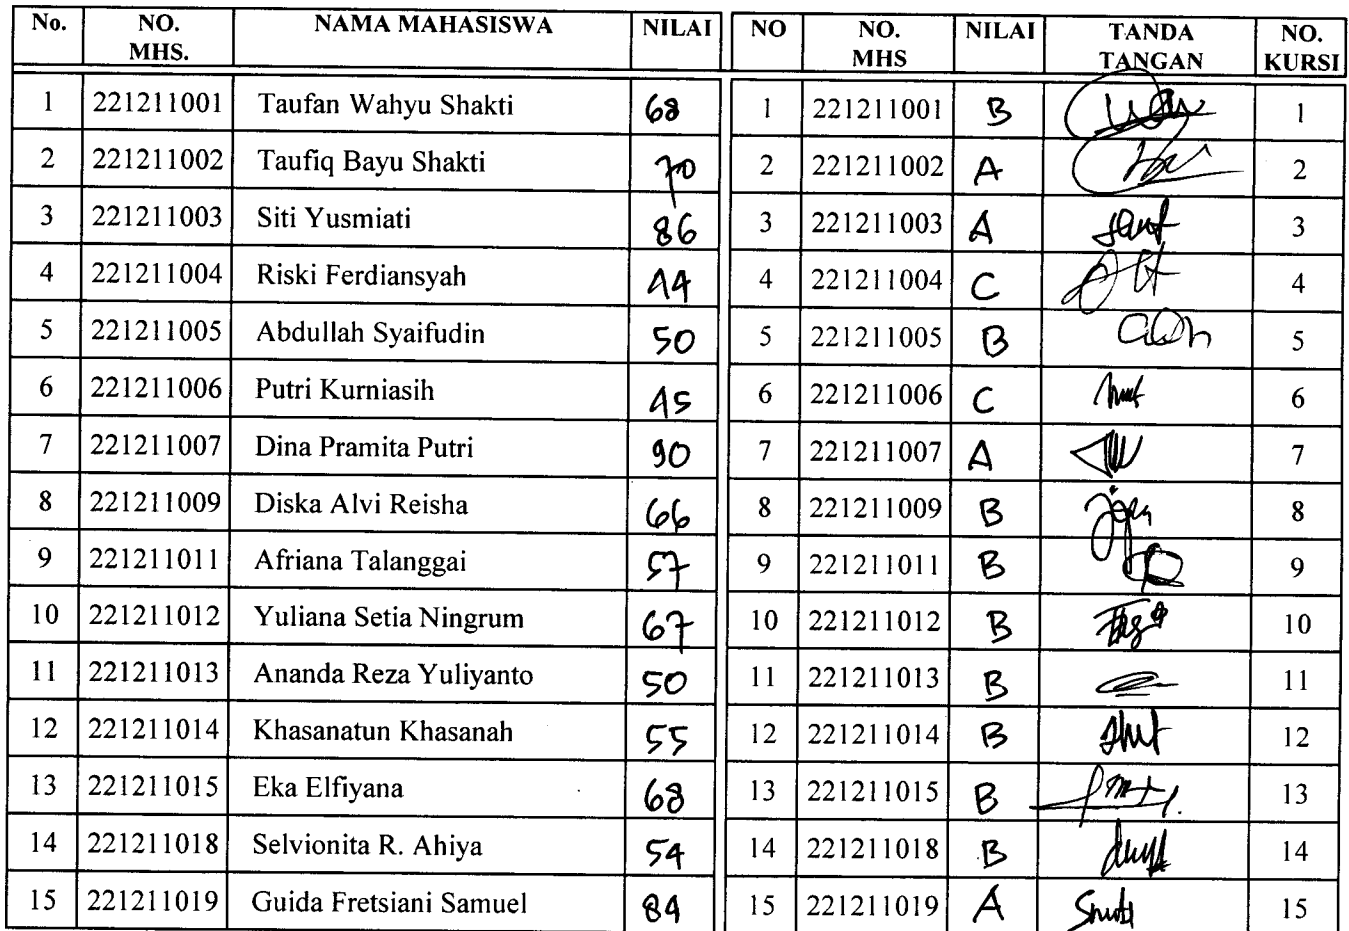 No. NO. MHS. NAMA MAHASISWA NILAI NO NO. MHS NILAI TANDA TANGAN NO. KURSI
1 221211001 Taufan Wahyu Shakti 68 1 221211001 B 1
2 221211002 Taufiq Bayu Shakti 70 2 221211002 A 2
3 221211003 Siti Yusmiati 86 3 221211003 A 3
4 221211004 Riski Ferdiansyah 44 4 221211004 C 4
5 221211005 Abdullah Syaifudin 50 5 221211005 B 5
6 221211006 Putri Kurniasih 45 6 221211006 C 6
7 221211007 Dina Pramita Putri 90 7 221211007 A 7
8 221211009 Diska Alvi Reisha 66 8 221211009 B 8
9 221211011 Afriana Talanggai 57 9 221211011 B 9
10 221211012 Yuliana Setia Ningrum 67 10 221211012 B 10
11 221211013 Ananda Reza Yuliyanto 50 11 221211013 B 11
12 221211014 Khasanatun Khasanah 55 12 221211014 B 12
13 221211015 Eka Elfiyana 68 13 221211015 B 13
14 221211018 Selvionita R. Ahiya 54 14 221211018 B 14
15 221211019 Guida Fretsiani Samuel 84 15 221211019 A 15